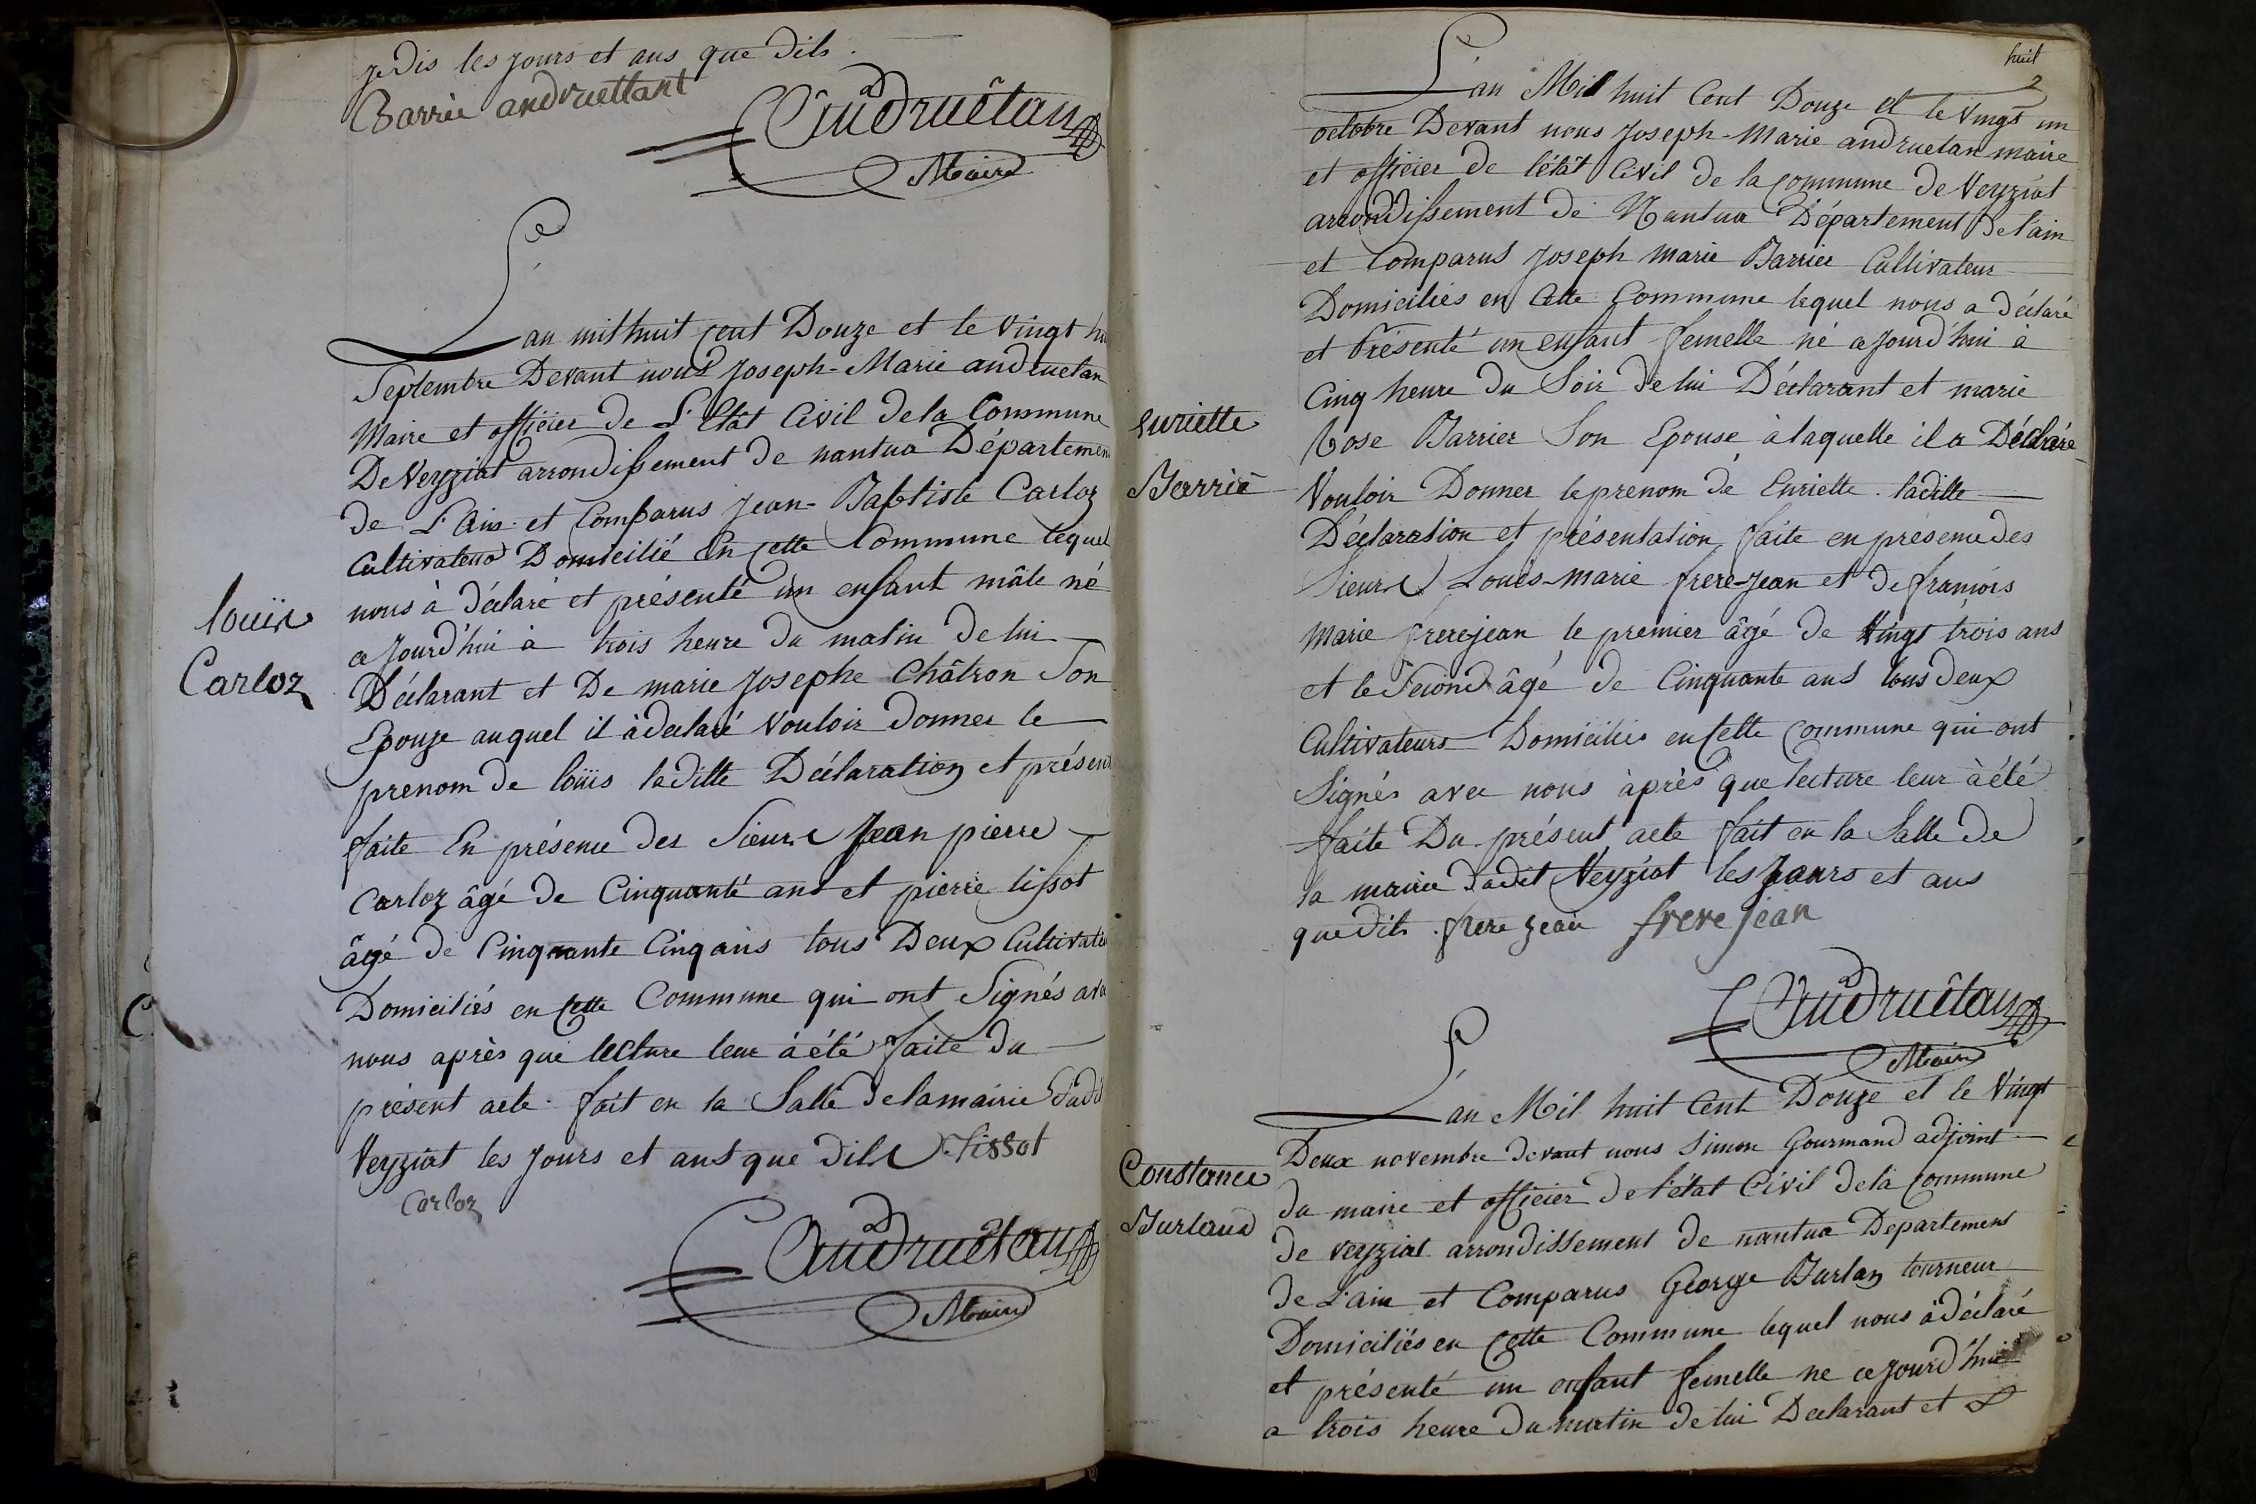 je dis les jours et ans que dits.
Barrié andruettant
Andruêtan
Maire
L'an mil huit cent Douze et le vingt
Septembre Devant nous Joseph-Marie andruetan
Maire et officier de L'Etat Civil de la Commune
De Veyziat arrondissement de nantua Départemen
de L'Ain et Comparus Jean-Baptiste Carloz
Cultivateur Domicilié En cette Commune lequel
nous à déclaré et présenté un enfant mâle né
cejourd'hui à trois heure du matin de lui
Déclarant et De marie Josephe Châtron Son
Epouze auquel il à déclaré Vouloir donner le
prenom de loüis laditte Déclaration et présent
faite En présence des Sieurs Jean pierre
Carloz âgé de Cinquanté ans et pierre tissot
âgé de Cinquante Cinq ans tous Deux Cultivateu
Domiciliés en Cette Commune qui ont Signés avec
nous après que lecture leur à été faite du
présent acte. fait en la Salle de la mairie dudit
Veyziat les jours et ans que dits Tissot
Carloz
Andruêtan
Maire
loüis
Carloz
huit
2
L'an Mil huit Cent Douze et le Vingt un
octobre Devant nous Joseph-Marie andruetan maire
et officier de l'état Civil de la Commune de Veyziat
arrondissement de Nantua Département de l'ain
et Comparus Joseph marie Barrier Cultivateur
Domiciliés en Cette Commune lequel nous a déclaré
et Présenté un enfant femelle né cejourd'hui à
Cinq heure du Soir de lui Déclarant et marie
Rose Barrier Son Epouse à laquelle il a Déclaré
Vouloir Donner le prenom de Enriette. laditte
Déclaration et présentation faite en présence des
Sieurs Louis-marie frere-jean et de francois
Marie frerejean le premier âgé de Vingt trois ans
et le Second âgé de Cinquante ans tous deux
Cultivateurs Domiciliés en Cette Commune qui ont
Signés avec nous àprès que lecture leur à été
faite Du présent acte fait en la Salle de
la mairie dudit Veyziat les jours et ans
que dits. frere jean frere jean
Andruêtan
Maire
Enriette
Barrié
L'an Mil huit Cent Douze et le Vingt
Deux novembre devant nous Simon Gourmand adjoint
du maire et officier de l'état Civil de la Commune
de Veyziat arrondissement de nantua Departement
de L'ain et Comparus George Burlan tourneur
Domiciliés en Cette Commune lequel nous à déclaré
et présenté un enfant femelle ne cejourd'hui
a trois heure du matin de lui Declarant et
Constance
Burland